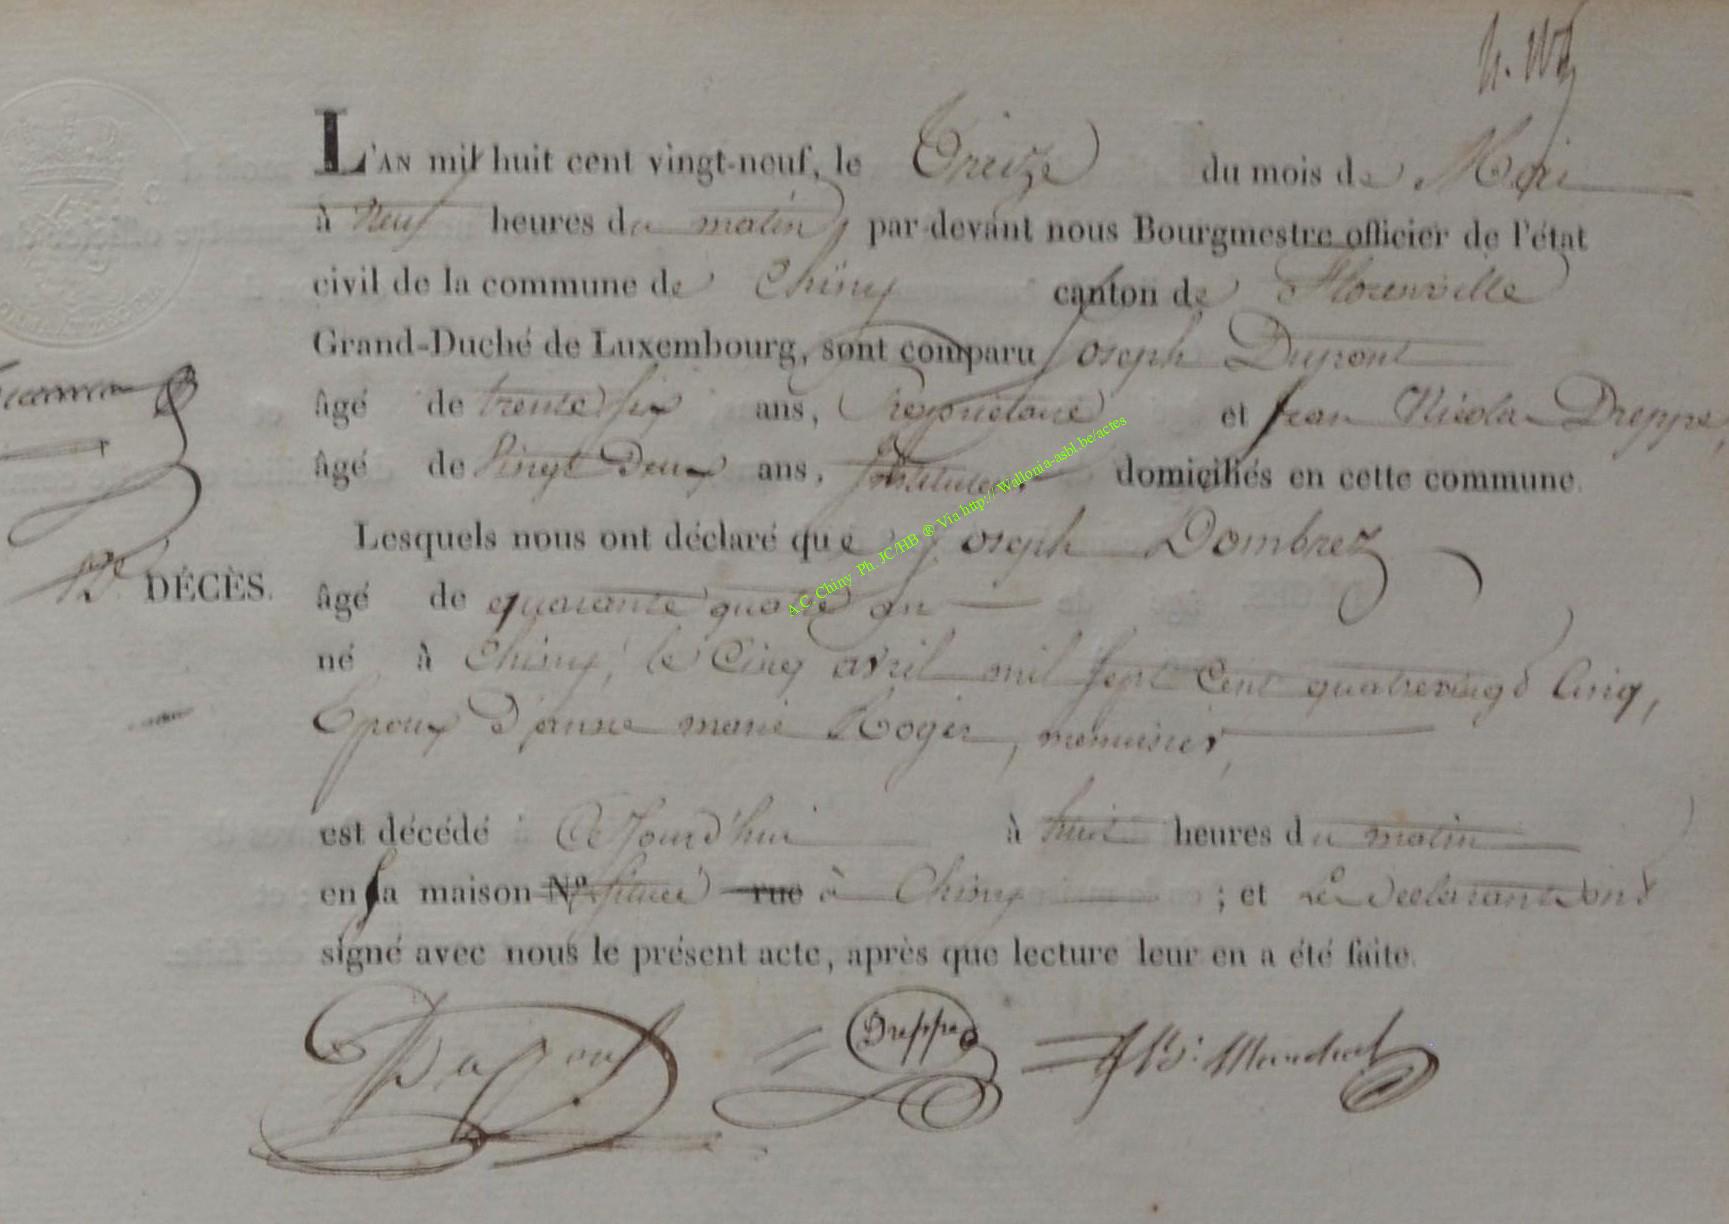 L'AN mil huit cent vingt-neuf, le Treize du mois de Mai
à Neuf heures du matin, par-devant nous Bourgmestre officier de l'état
civil de la commune de Chiny canton de Florenville
Grand-Duché de Luxembourg, sont comparu Joseph Dupont
âgé de trente six ans, Propriétaire et Jean Nicolas Dreppe,
âgé de Vingt Deux ans, Instituteur domiciliés en cette commune.
Lesquels nous ont déclaré que Joseph Dombrez
12e DÉCÈS.
âgé de quarante quatre an
né à Chiny, le Cinq avril mil sept Cent quatrevingt Cinq,
Epoux D'anne marie Roger, menuisier,
est décédé Cejourd'hui à huit heures du matin
en sa maison N° située rue à Chiny ; et Les Déclarants ont
signé avec nous le présent acte, après que lecture leur en a été faite.
Dupont Dreppe
A.C. Chiny Ph. JC/HB ® Via http://Wallonia-asbl.be/actes